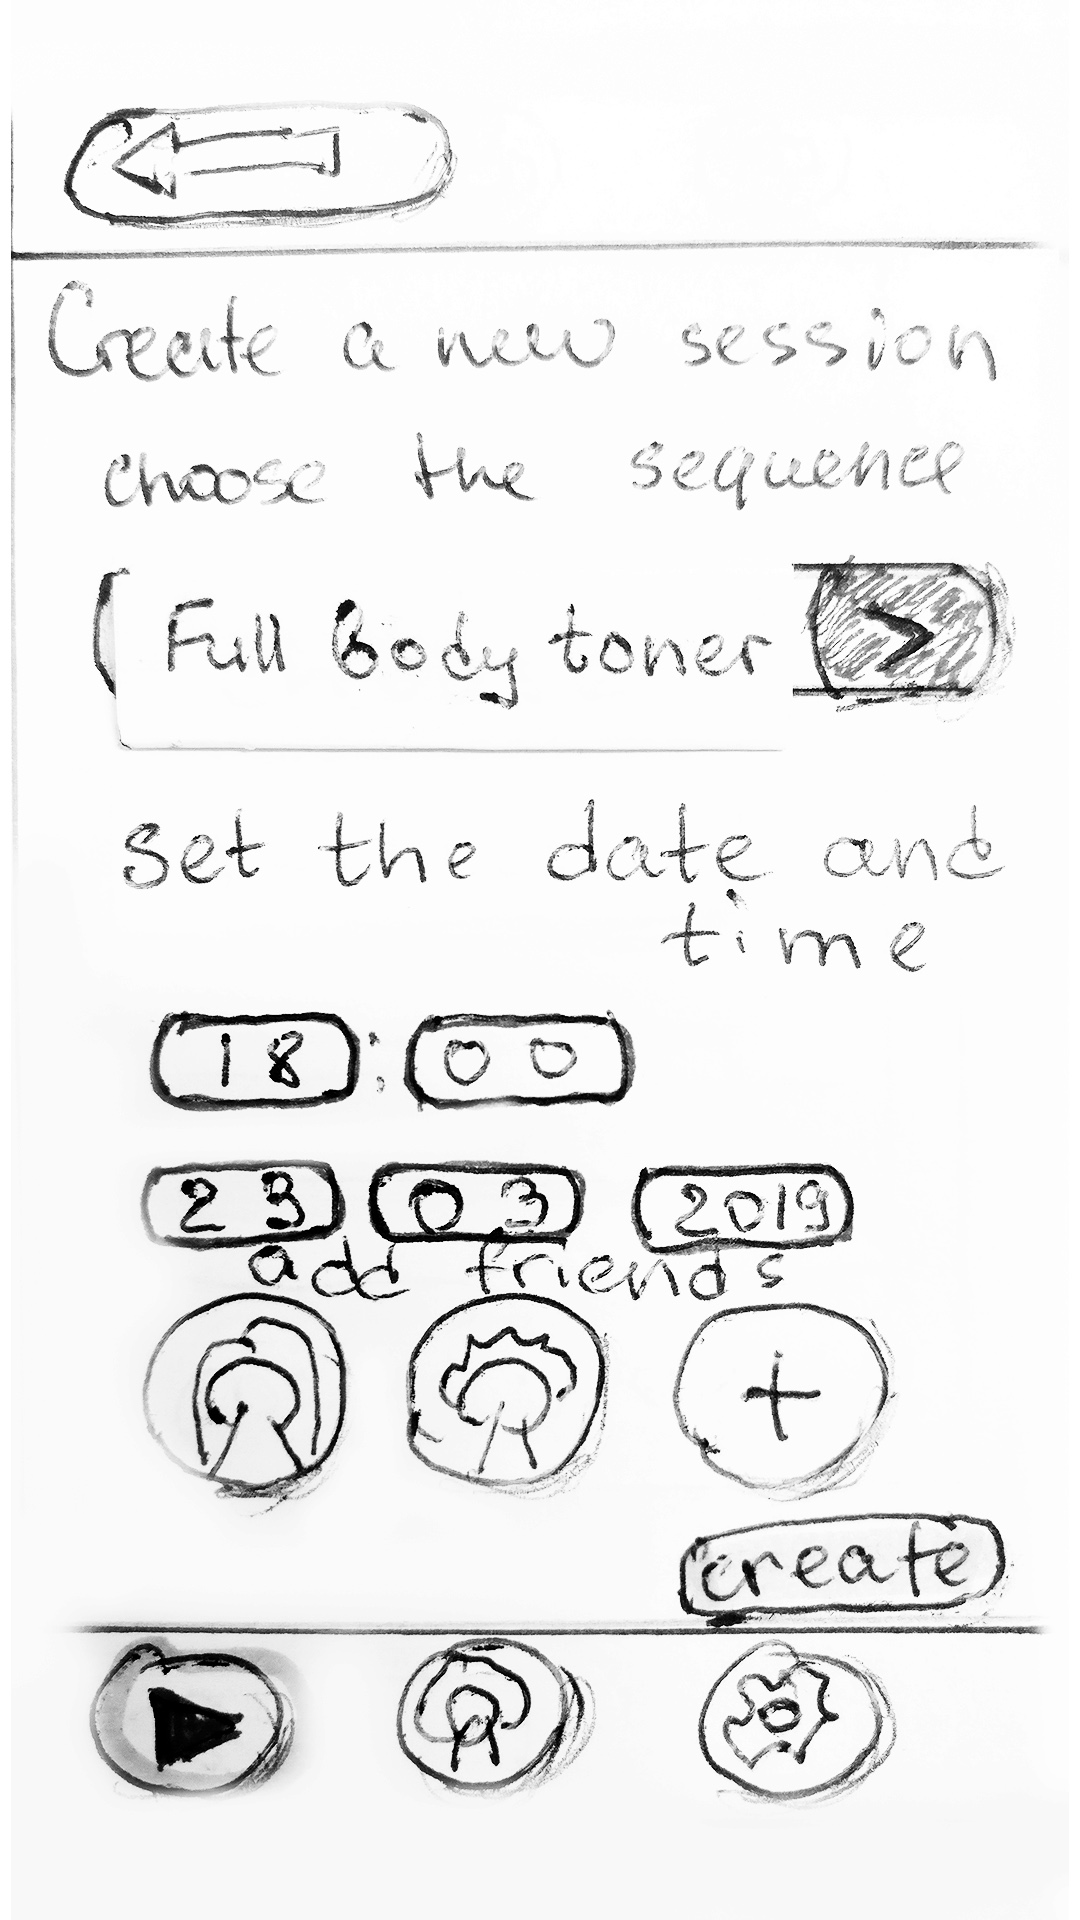 Create a new session
choose the sequence
Full Body toner >
set the date and
time
18 : 00
23 03 2019
add friends
+
create